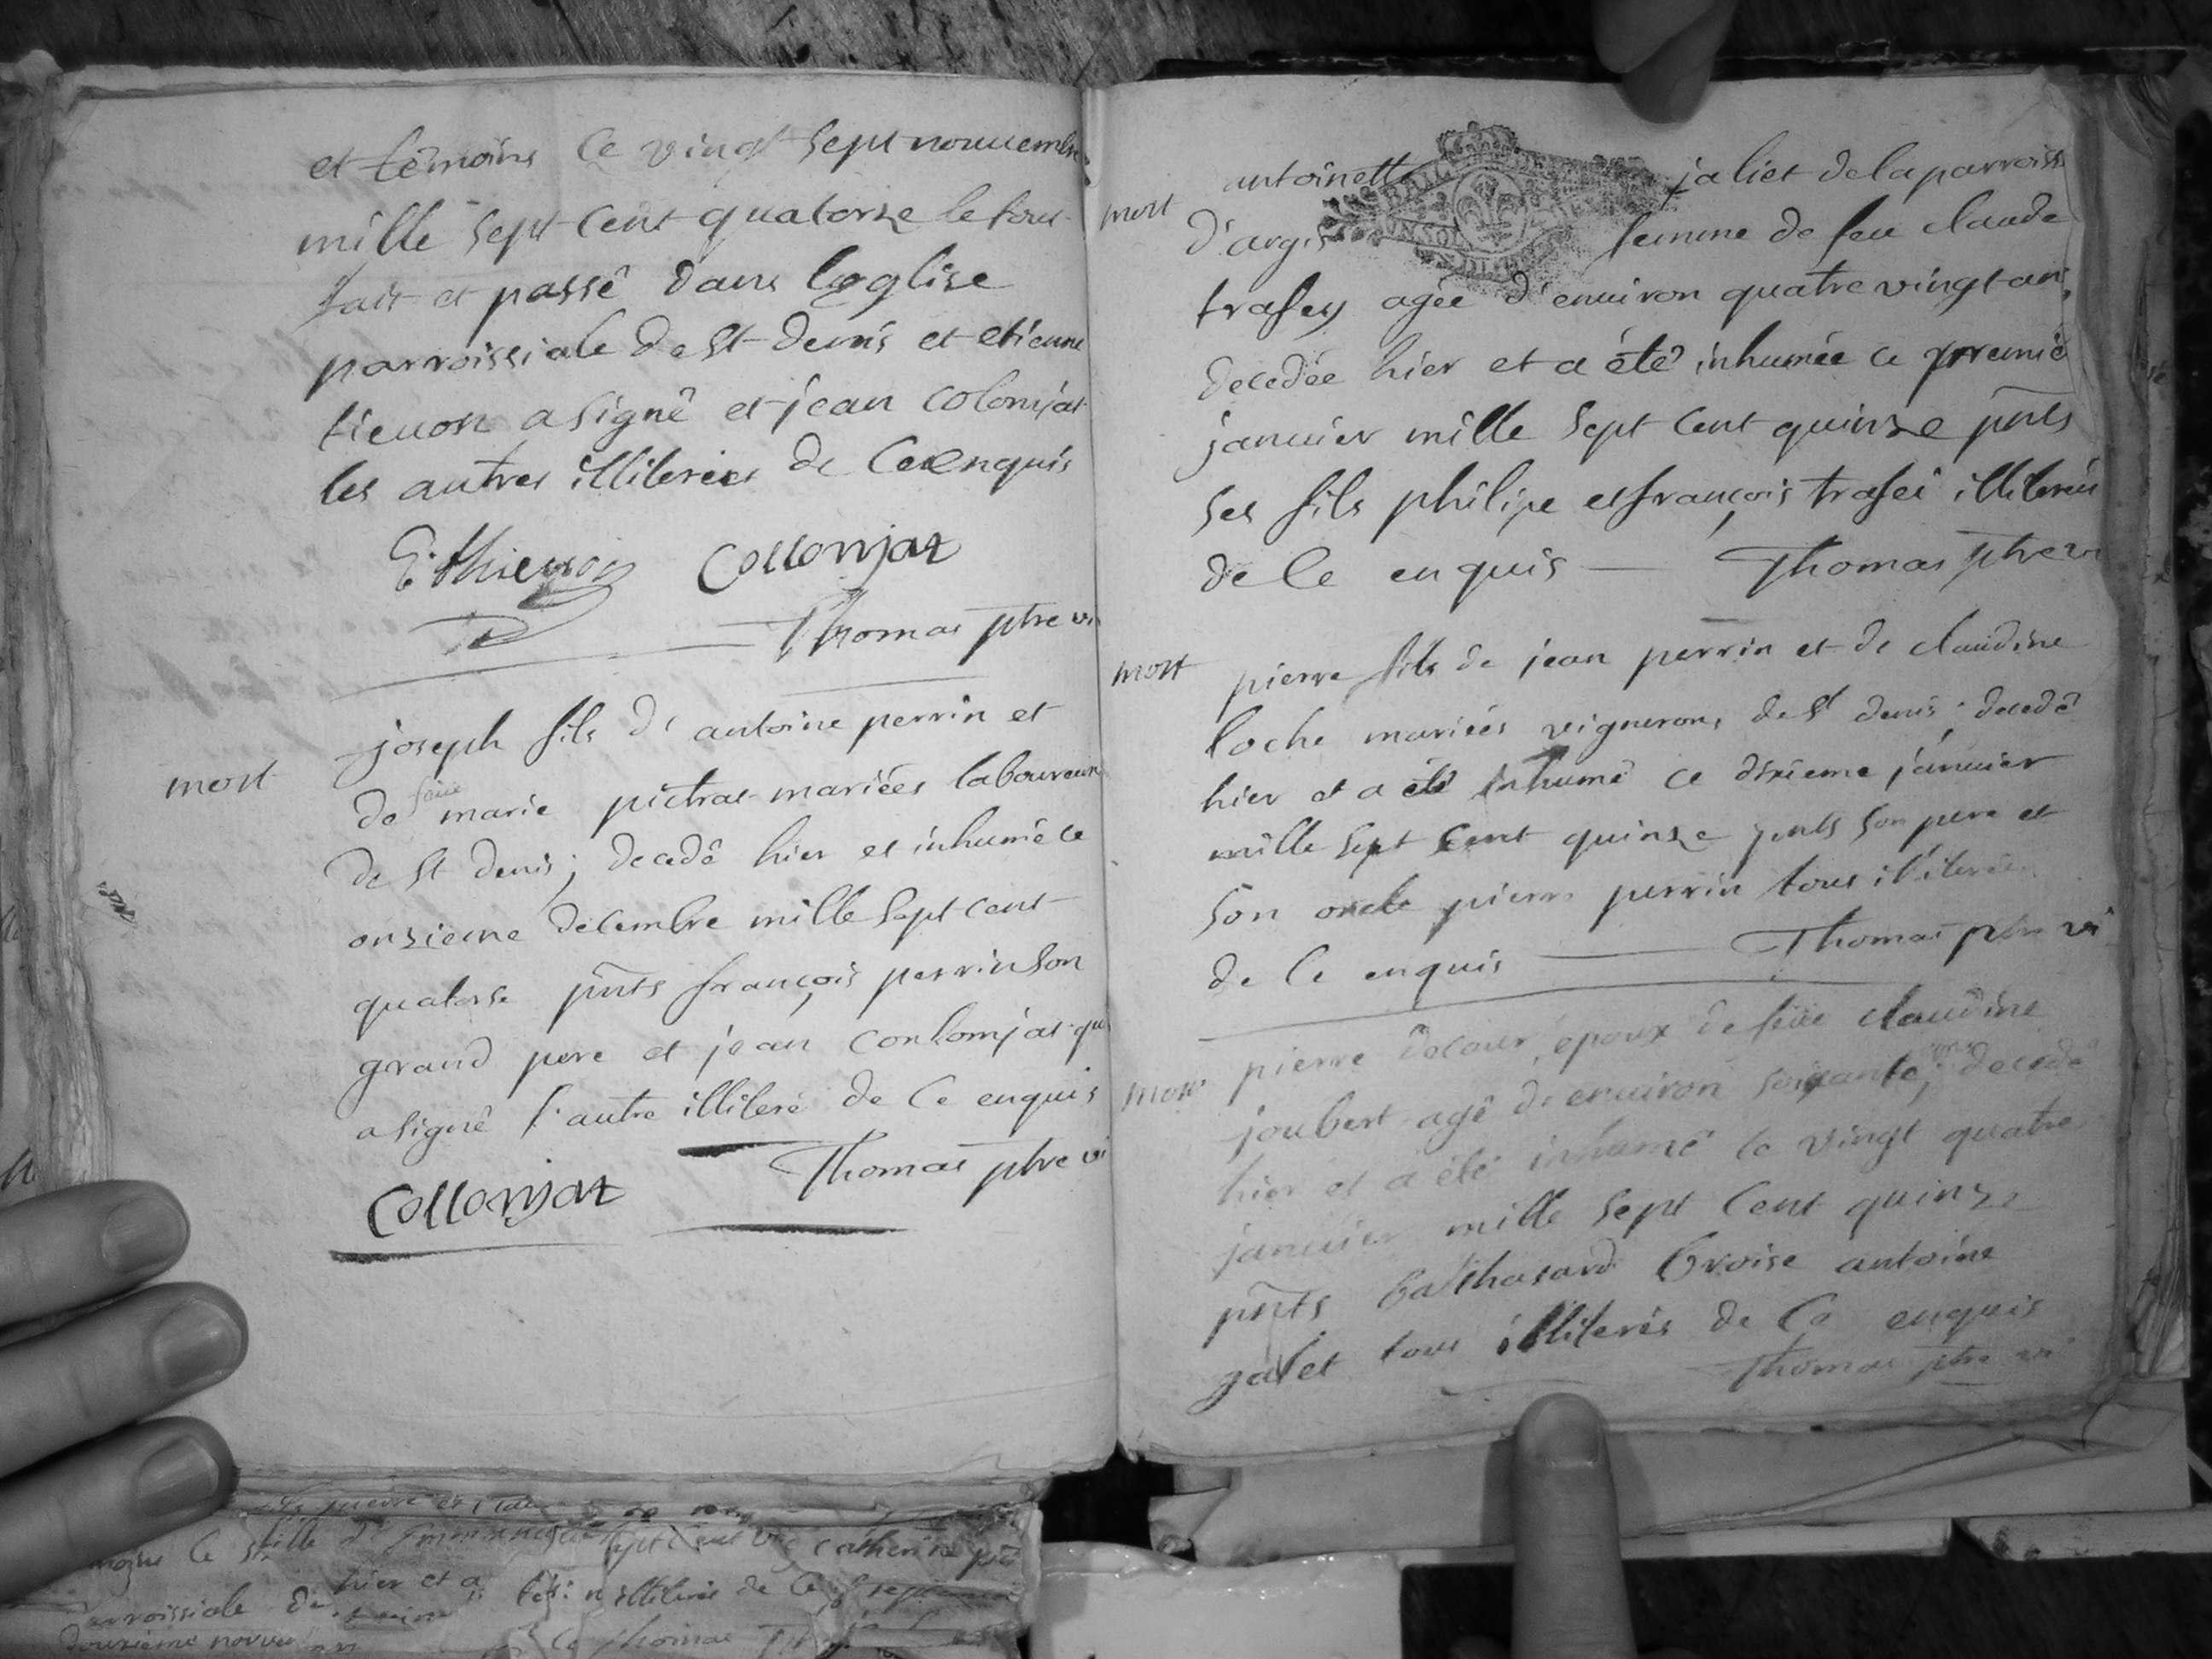 et têmoins ce vingt sept nouuembre
mille sept cent quatorze le tout
fait et passê dans l'eglise
parroissiale de st denis et etienne
tieuon a signê et jean colonjat
les autres illiterées de ce enquis
E. thieuon Collonjat
Thomas ptre vi
mort
joseph fils d' antoine perrin et
feüe
de marie pictras mariées laboureurs
de st denis; decedê hier et inhumé ce
onzieme decembre mille sept cent
quatorse pnts françois perrin son
grand pere et jean conlomjat qui
a signê l'autre illiteré de ce enquis
Collonjat Thomas ptre vi
mort
antoinette jaliet de la parroisse
d'argis femme de feu claude
trafey agée d'enuiron quatre vingt ans
decedée hier et a êtê inhumée ce premie
januier mille sept cent quinze pnts
ses fils philipe et françois trafei illiterés
de ce enquis Thomas ptre vi
mort
pierre fils de jean perrin et de claudine
loche mariées vignerons de st denis decedê
hier et a êtê inhumê ce dixieme januier
mille sept cent quinze pnts son pere et
son oncle pierre perrin tous illiterés
de ce enquis Thomas ptre vi
mort
pierre époux de feüe claudine
joubert agê d'enuiron soixante ans; decedê
hier et a êtê inhumê le vingt quatre
januier mille sept cent quinze
pnts balthasard broise antoine
galet tous illiterés de ce enquis
Thomas ptre vi
hier et a
illiterés de ce
parroissiale de
Thomas